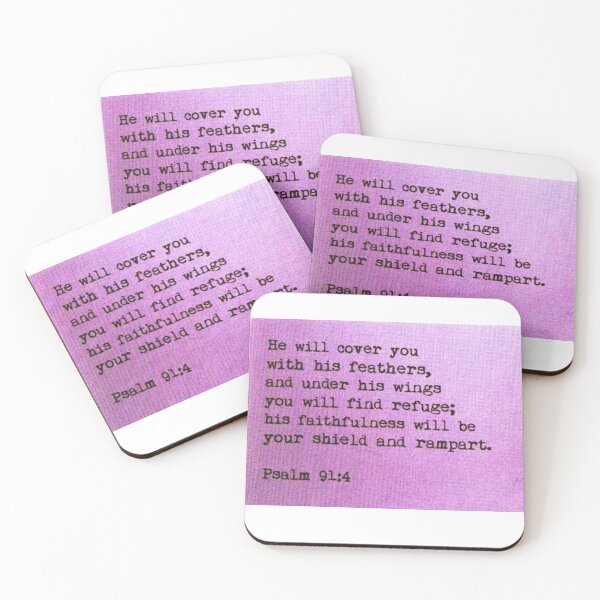 He will cover you
with his feathers,
and under his wings
you will find refuge;
will be
He will cover you
with his feathers,
and under his wings
you will find refuge;
his faithfulness will be
your shield and rampart.
Psalm
He will cover you
with his feathers,
and under his wings
you will find refuge;
his faithfulness will be
your shield and rampart.
Psalm 91:4
He will cover you
with his feathers,
and under his wings
you will find refuge;
his faithfulness will be
your shield and rampart.
Psalm 91:4